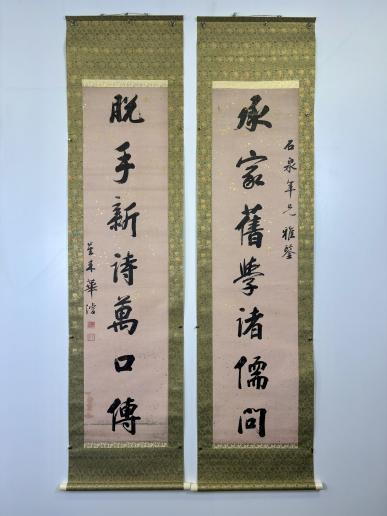 石泉年兄雅鑒
承家舊學諸儒問
脫手新詩萬口傳